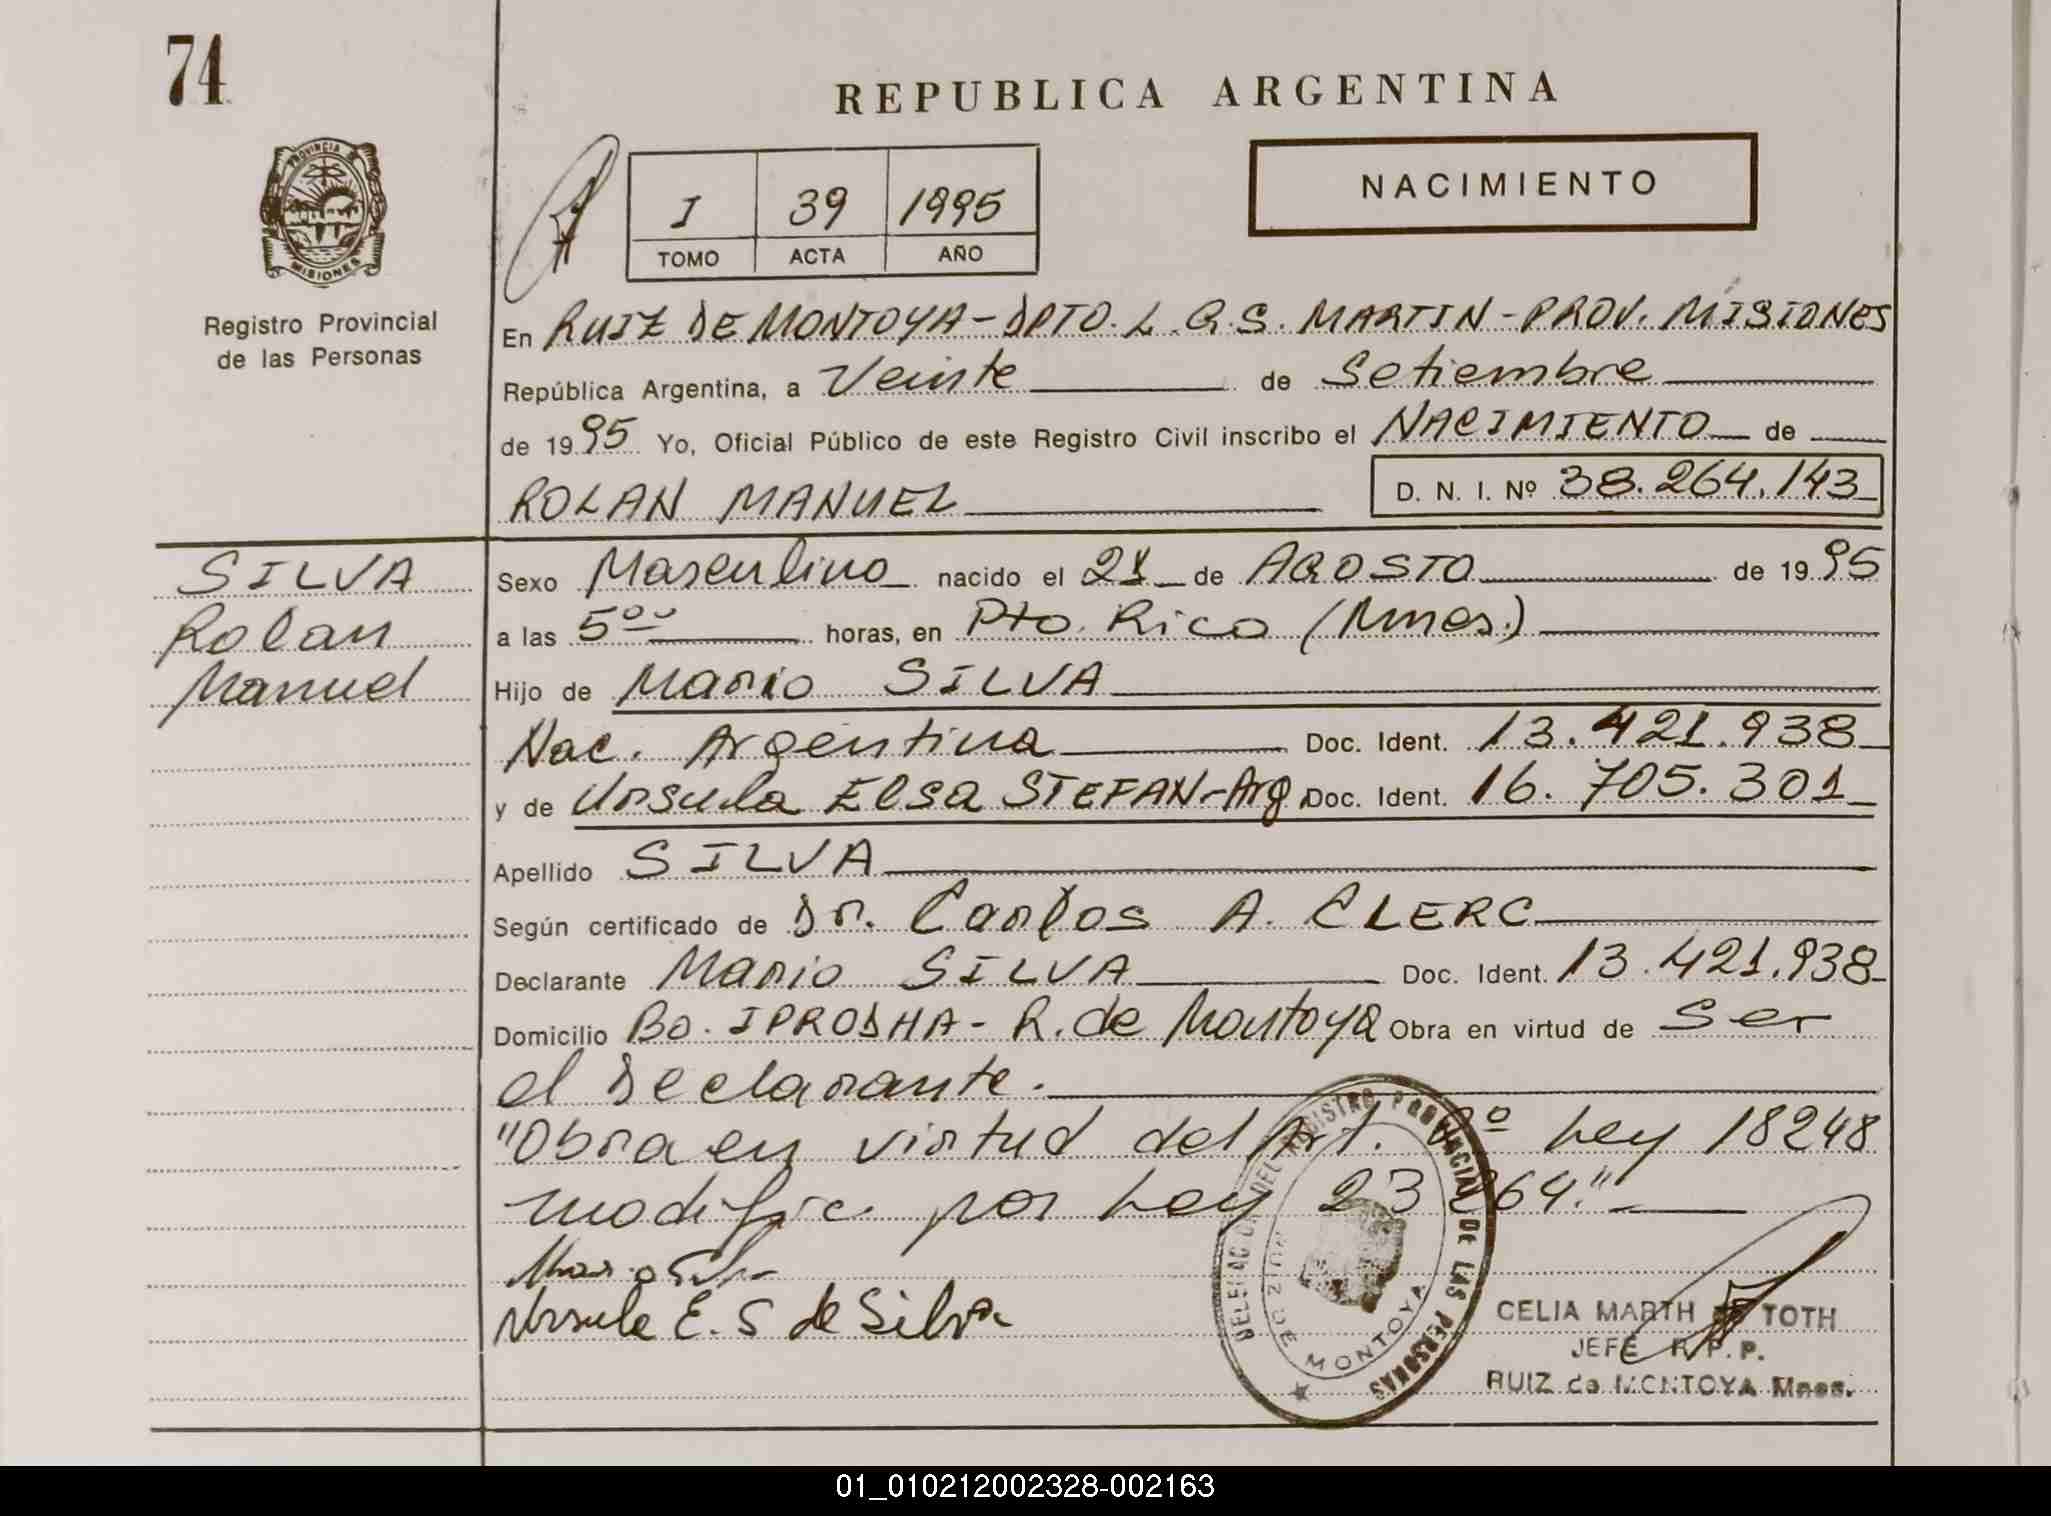 74
REPUBLICA ARGENTINA
PROVINCIA DE
MISIONES
Registro Provincial
de las Personas
I 39 1995
TOMO ACTA AÑO
NACIMIENTO
En RUIZ DE MONTOYA - DPTO. L.G.S. MARTIN - PROV. MISIONES
República Argentina, a Veinte de Setiembre
de 1995 Yo, Oficial Público de este Registro Civil inscribo el NACIMIENTO de
ROLAN MANUEL D. N. I. Nº 38.264.143
SILVA
Rolan
Manuel
Sexo Masculino nacido el 21 de AGOSTO de 1995
a las 5⁰⁰ horas, en Pto. Rico (Mnes.)
Hijo de Mario SILVA
Nac. Argentina Doc. Ident. 13.421.938
y de Ursula Elsa STEFAN-Arg Doc. Ident. 16.705.301
Apellido SILVA
Según certificado de Dr. Carlos A. CLERC
Declarante Mario SILVA Doc. Ident. 13.421.938
Domicilio Bo. IPRODHA - R. de Montoya Obra en virtud de Ser
el Declarante.
"Obra en virtud del Art. Ley 18248
modific. por Ley 23264."
Mario Silva
Ursula E. S de Silva
DELEGACION DEL REGISTRO PROVINCIAL DE LAS PERSONAS
RUIZ DE MONTOYA
CELIA MARTH DE TOTH
JEFE R.P.P.
RUIZ de MONTOYA Mnes.
01_010212002328-002163